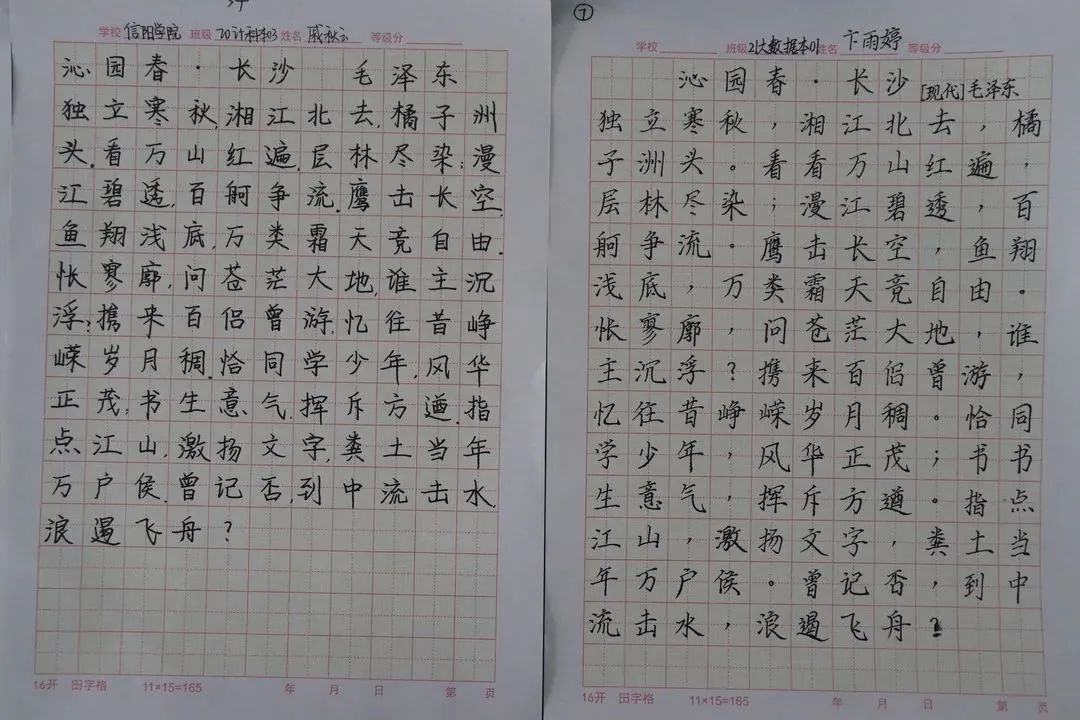 学校 信阳学院 班级 20计科本03 姓名 等级分
沁园春·长沙 毛泽东
独立寒秋,湘江北去,橘子洲
头.看万山红遍,层林尽染;漫
江碧透,百舸争流.鹰击长空,
鱼翔浅底,万类霜天竞自由.
怅寥廓,问苍茫大地,谁主沉
浮?携来百侣曾游,忆往昔峥
嵘岁月稠.恰同学少年,风华
正茂;书生意气,挥斥方遒.指
点江山,激扬文字,粪土当年
万户侯.曾记否,到中流击水,
浪遏飞舟?
16开 田字格 11×15=165 年 月 日 第 页
⑦
学校 班级 21大数据本01 姓名 卞雨婷 等级分
沁园春·长沙 [现代]毛泽东
独立寒秋,湘江北去,橘
子洲头。看看万山红遍,
层林尽染;漫江碧透,百
舸争流。鹰击长空,鱼翔
浅底,万类霜天竞自由。
怅寥廓,问苍茫大地,谁
主沉浮?携来百侣曾游,
忆往昔峥嵘岁月稠。恰同
学少年,风华正茂;书书
生意气,挥斥方遒。指点
江山,激扬文字,粪土当
年万户侯。曾记否,到中
流击水,浪遏飞舟?
16开 田字格 11×15=165 年 月 日 第 页